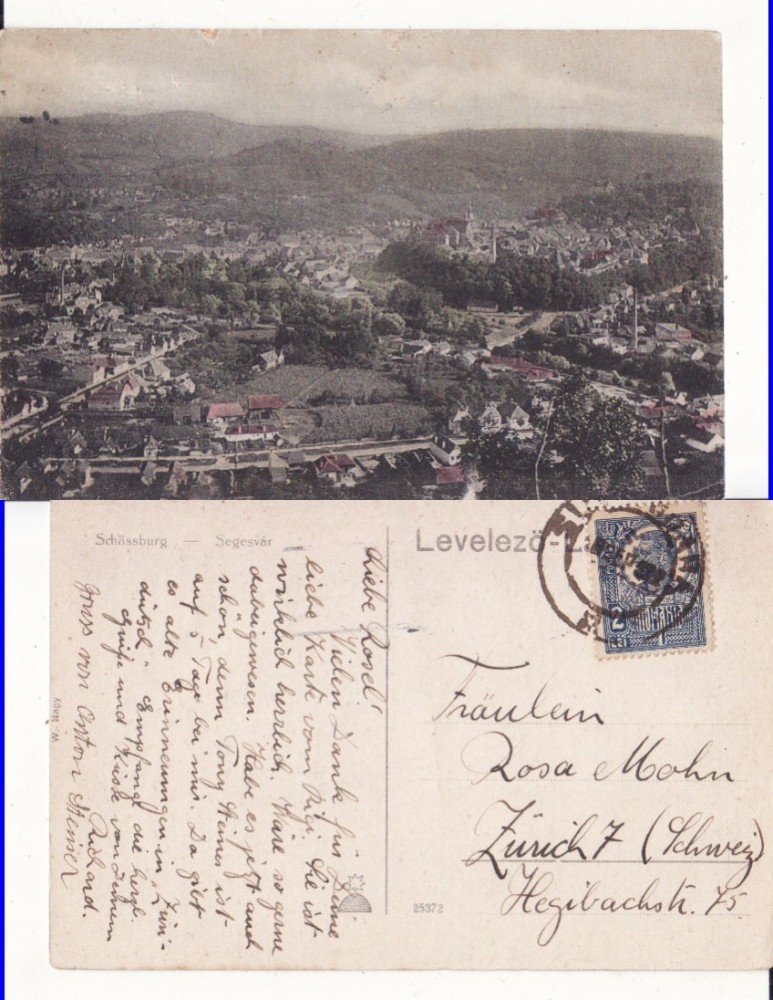 Schässburg — Segesvár
Levelező-L
2 LEI
ROMANIA
Liebe Rosel!
Vielen Dank für Deine
liebe Karte vom Rigi. Sie ist
wirklich herzlich. Wäre so gerne
dabeigewesen. Habe es jetzt auch
schön, denn Tony Steiner ist
auf 5 Tage bei mir. Da gibt
es alte Erinnerungen in "Züri-
dütsch". Empfange die herzl.
Grüsse und Küsse von Deinem
Richard.
Gruss von Anton Steiner
W. Nagy
25372
Fräulein
Rosa Mohn
Zürich 7 (Schweiz)
Hegibachstr. 75